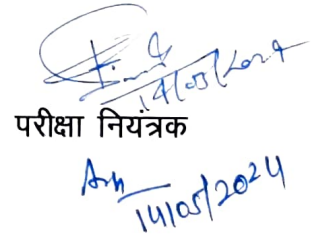 14/05/2024
परीक्षा नियंत्रक
14/05/2024